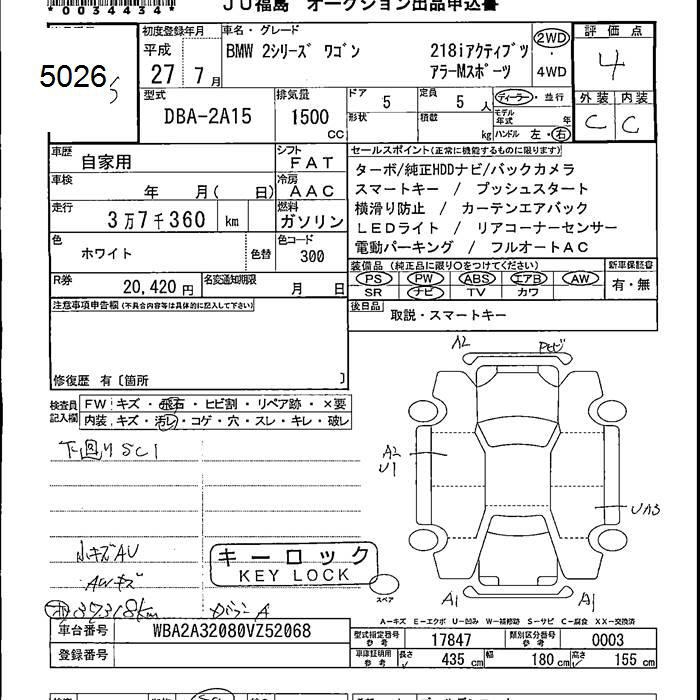 *0034434*
JU福島 オークション出品申込書
5026
初度登録年月
平成
27 7月
車名・グレード
BMW 2シリーズ ワゴン
218iアクティブツ
アラーMスポーツ
2WD
・
4WD
評価点
4
外装 内装
C C
型式
DBA-2A15
排気量
1500
CC
ドア 5
定員 5人
形状
積載 kg
ディーラー・並行
モデル年式 年
ハンドル 左・右
車歴
自家用
シフト
FAT
車検
年 月( 日)
冷房
AAC
走行
3万7千360 km
燃料
ガソリン
色
ホワイト
色替
色コード
300
R券
20,420円
名変通知期限
月 日
セールスポイント(正常に機能するものに限ります)
ターボ/純正HDDナビ/バックカメラ
スマートキー / プッシュスタート
横滑り防止 / カーテンエアバック
LEDライト / リアコーナーセンサー
電動パーキング / フルオートAC
装備品(純正品に限り○をつけてください)
PS PW ABS エアB AW
SR ナビ TV カワ
新車保証書
有・無
後日品
取説・スマートキー
注意事項申告欄(不具合内容等は具体的に記入して下さい)
修復歴 有〔箇所 〕
検査員記入欄
FW キズ・飛石・ヒビ割・リペア跡・×要
内装 キズ・汚レ・コゲ・穴・スレ・キレ・破レ
下回りSC1
小キズAU
AWキズ
37318km
ガラスA
キーロック
KEY LOCK
A2
A2
U1
UA3
A1
A1
スペア
A-キズ E-エクボ U-凹み W-補修跡 S-サビ C-腐食 XX-交換済
車台番号
WBA2A32080VZ52068
登録番号
型式指定番号
参考
17847
類別区分番号
参考
0003
車庫証明用
参考
長さ 435cm
幅 180cm
高さ 155cm